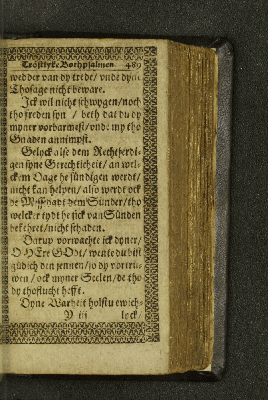 Tröstlyke Bothpsalmen. 489
wedder van dy trede/ vnde dyne
Thosage nicht beware.
Jck wil nicht schwygen/ noch
tho freden syn / beth dat du dy
myner vorbarmest/ vnde my tho
Gnaden annimpst.
Gelyck alse dem Rechtferdi-
gen syne Gerechticheit/ an wel-
ckem Dage he sündigen werdt/
nicht kan helpen/ also werdt ock
de Missdadt dem Sünder/ tho
welcker tydt he sick van Sünden
bekehret/ nicht schaden.
Darup vorwachte ick dyner/
O HEre GOdt/ wente du bist
güdich den jennen/ so dy vortru-
wen / ock myner Seelen/ de tho
dy thoflucht hefft.
Dyne Warheit holstu ewich-
V iij lyck/